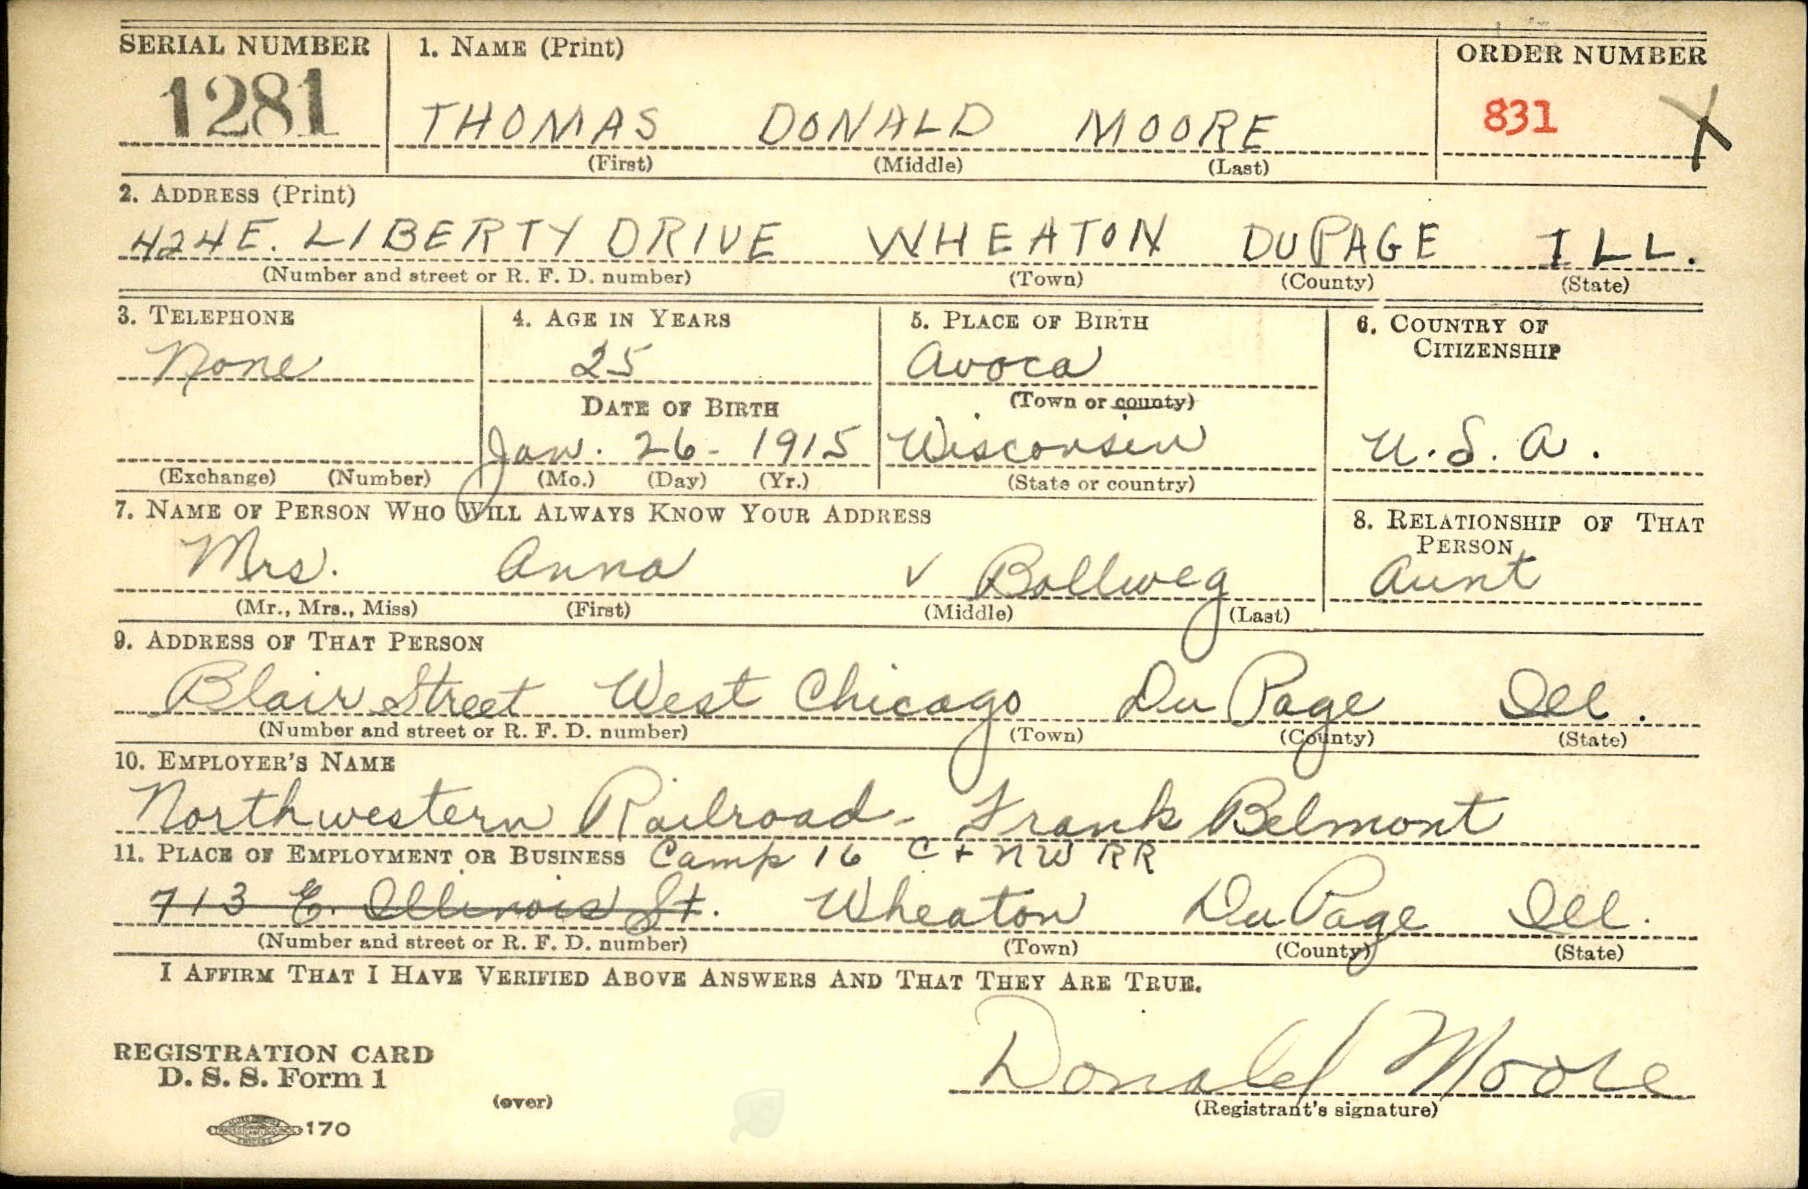 SERIAL NUMBER
1281
1. NAME (Print)
THOMAS DONALD MOORE
(First) (Middle) (Last)
ORDER NUMBER
831 X
2. ADDRESS (Print)
424 E. LIBERTY DRIVE WHEATON DUPAGE ILL.
(Number and street or R. F. D. number) (Town) (County) (State)
3. TELEPHONE
None
(Exchange) (Number)
4. AGE IN YEARS
25
DATE OF BIRTH
Jan. 26 - 1915
(Mo.) (Day) (Yr.)
5. PLACE OF BIRTH
Avoca
(Town or county)
Wisconsin
(State or country)
6. COUNTRY OF
CITIZENSHIP
U.S.A.
7. NAME OF PERSON WHO WILL ALWAYS KNOW YOUR ADDRESS
Mrs. Anna v Bollweg
(Mr., Mrs., Miss) (First) (Middle) (Last)
8. RELATIONSHIP OF THAT
PERSON
Aunt
9. ADDRESS OF THAT PERSON
Blair Street West Chicago Du Page Ill.
(Number and street or R. F. D. number) (Town) (County) (State)
10. EMPLOYER'S NAME
Northwestern Railroad - Frank Belmont
11. PLACE OF EMPLOYMENT OR BUSINESS Camp 16 C + NW RR
713 E. Illinois St. Wheaton Du Page Ill.
(Number and street or R. F. D. number) (Town) (County) (State)
I AFFIRM THAT I HAVE VERIFIED ABOVE ANSWERS AND THAT THEY ARE TRUE.
REGISTRATION CARD
D. S. S. Form 1
(over)
170
Donald Moore
(Registrant's signature)